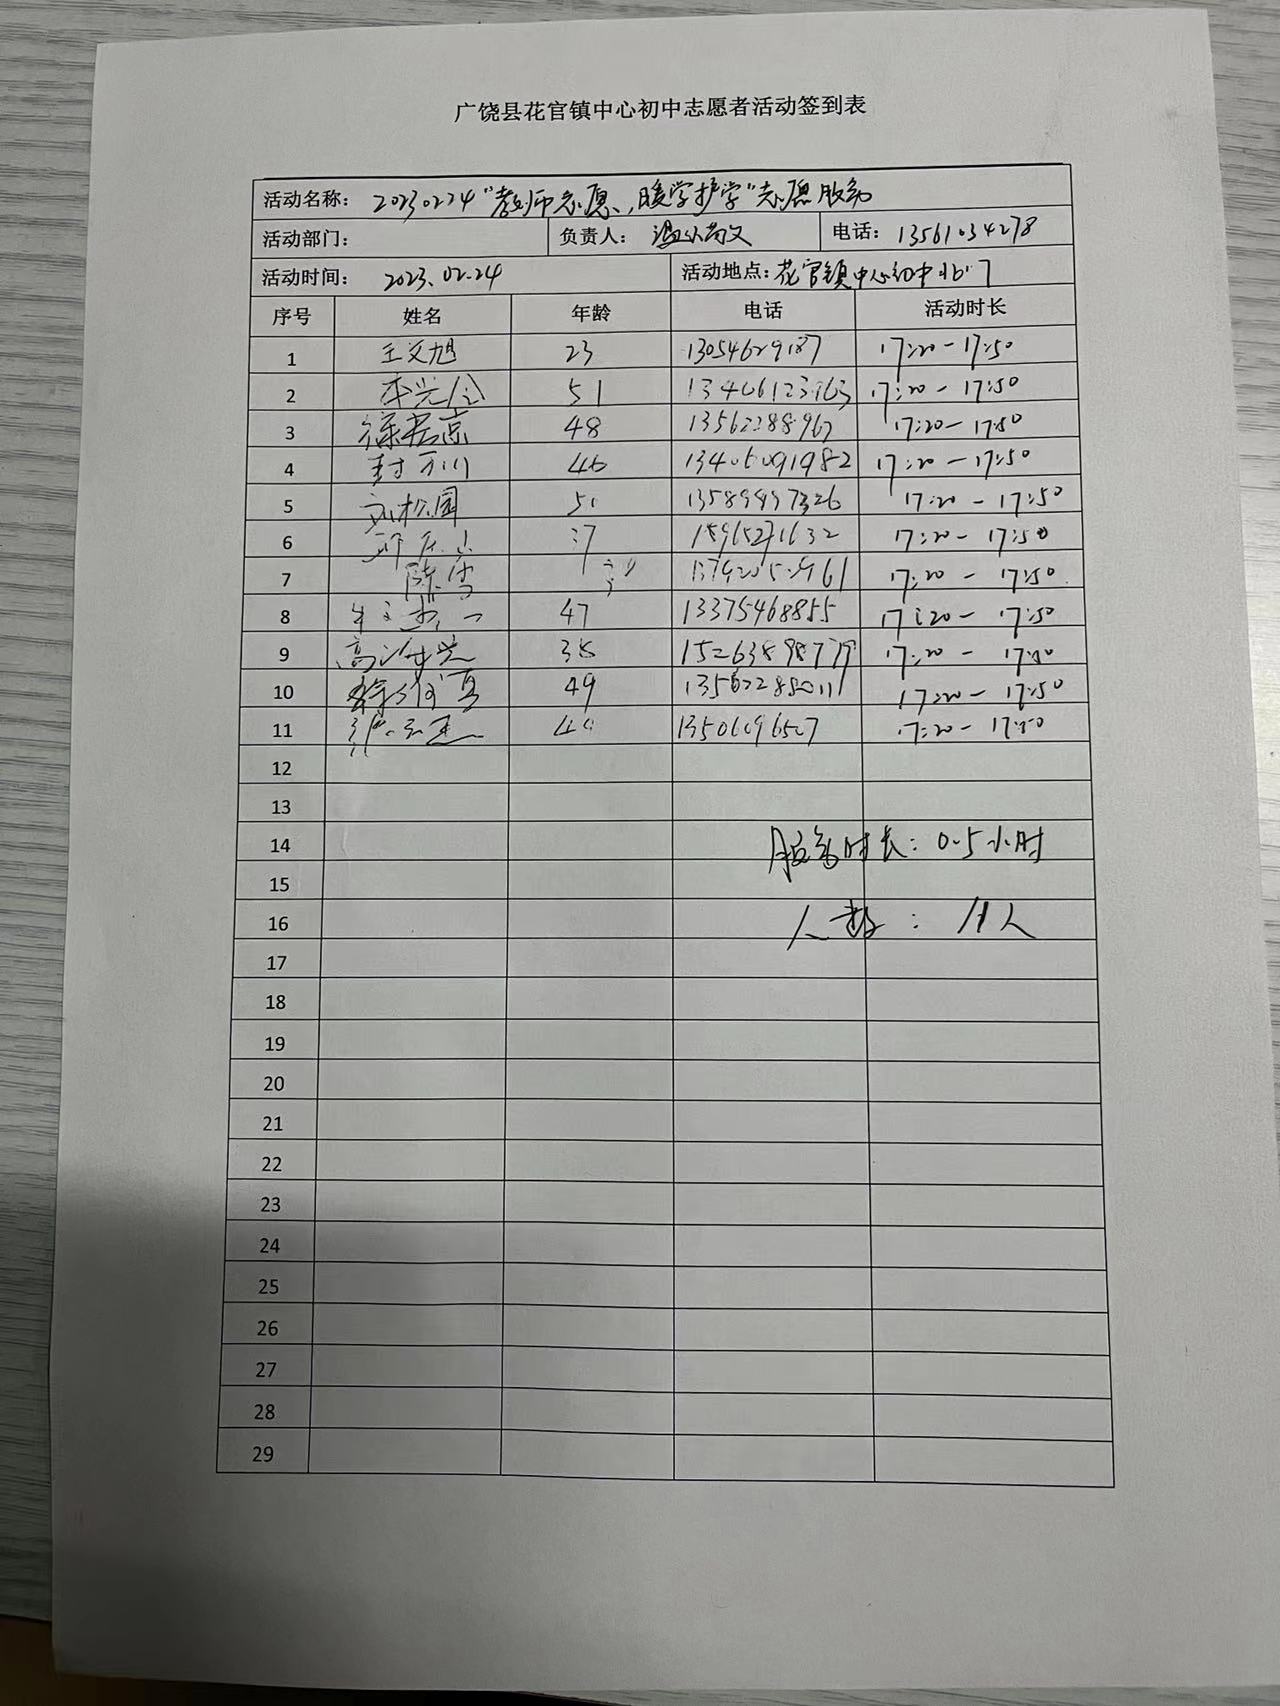 广饶县花官镇中心初中志愿者活动签到表
活动名称： 20230224“教师志愿、暖学护学”志愿服务
活动部门： 负责人： 电话：13561034278
活动时间： 2023.02.24 活动地点：花官镇中心初中北门
序号 姓名 年龄 电话 活动时长
1 王文旭 23 13054629187 17:20-17:50
2 51 13406123963 17:20-17:50
3 48 13562288967 17:20-17:50
4 封万川 46 13405091982 17:20-17:50
5 刘松园 51 13589997326 17:20-17:50
6 37 15965271632 17:20-17:50
7 陈雪 17:20-17:50
8 47 13375468855 17:20-17:50
9 38 15263898779 17:20-17:50
10 49 13562288011 17:20-17:50
11 13501096507 17:20-17:50
12
13
14 服务时长：0.5小时
15
16 人数：11人
17
18
19
20
21
22
23
24
25
26
27
28
29